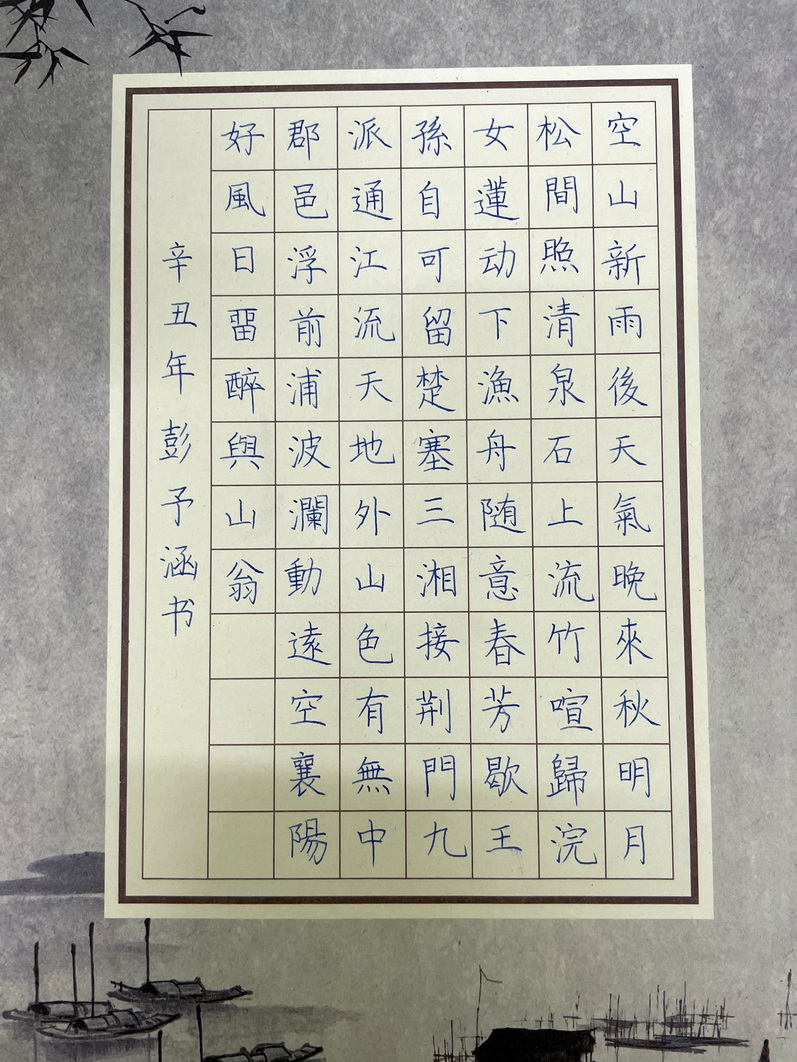 空山新雨後天氣晚來秋明月
松間照清泉石上流竹喧歸浣
女蓮动下漁舟随意春芳歇王
孫自可留楚塞三湘接荆門九
派通江流天地外山色有無中
郡邑浮前浦波瀾動遠空襄陽
好風日畱醉與山翁
辛丑年彭予涵书